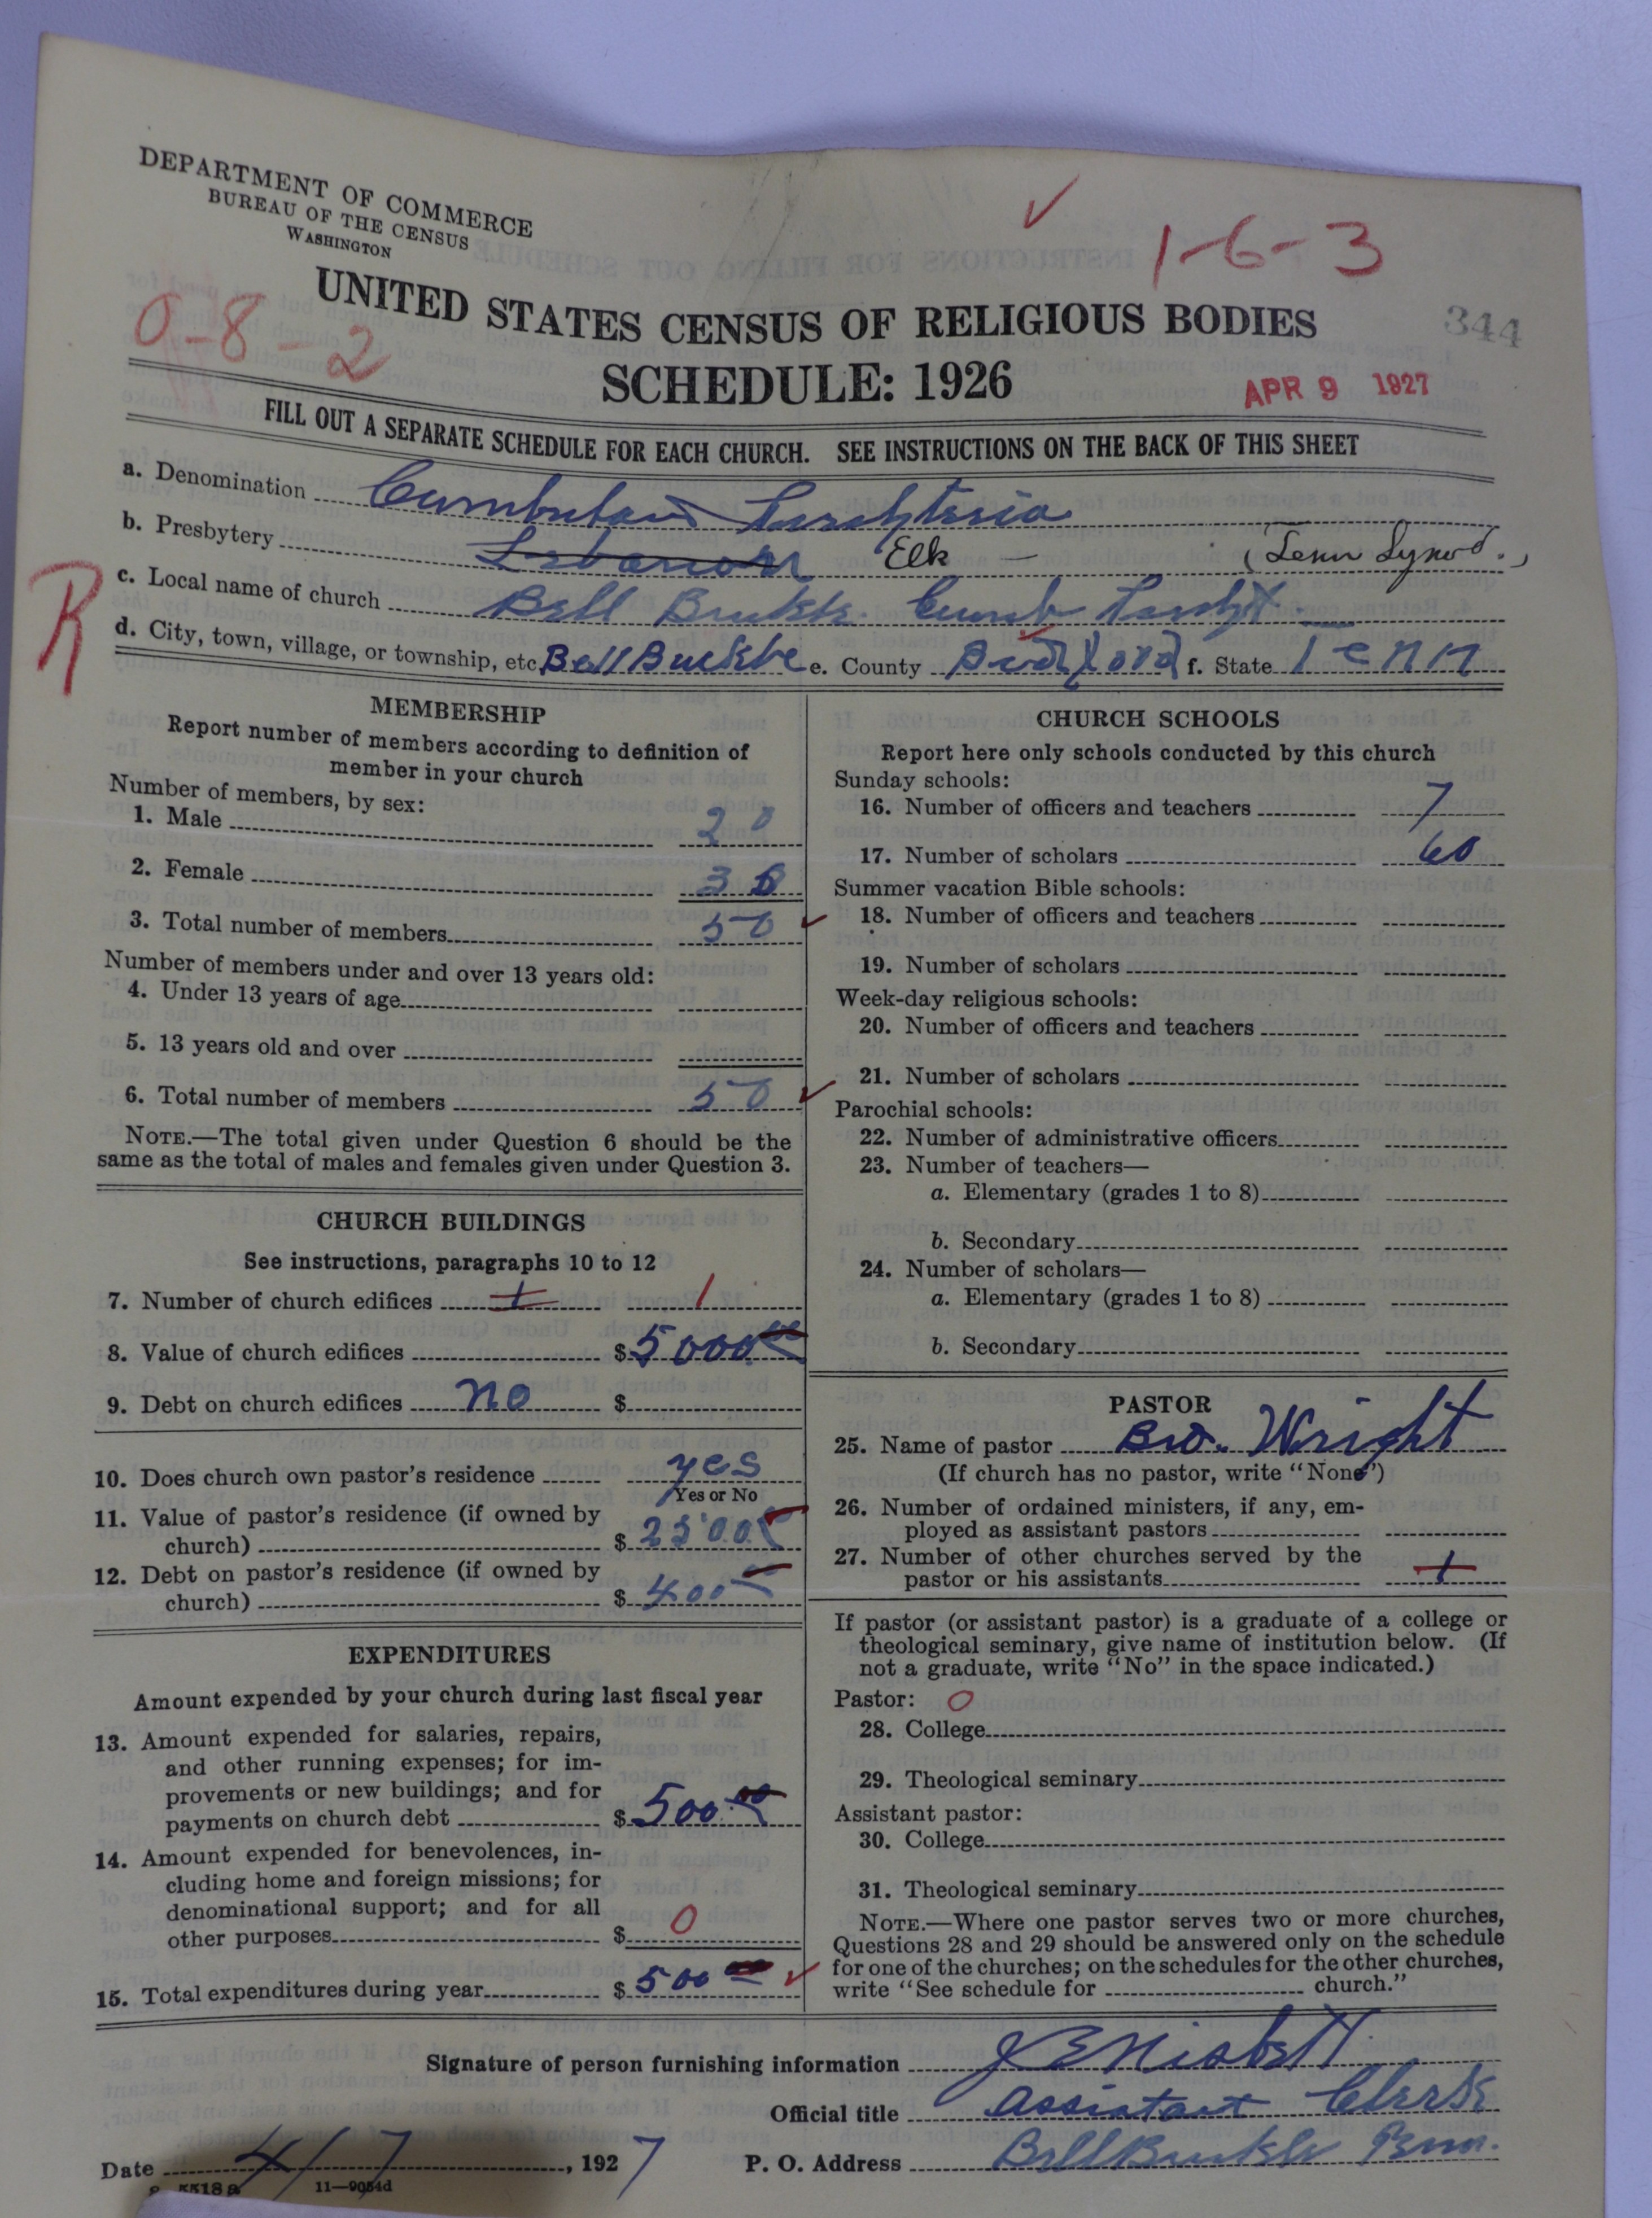 DEPARTMENT OF COMMERCE
BUREAU OF THE CENSUS
WASHINGTON
1-6-3
0-8-2
UNITED STATES CENSUS OF RELIGIOUS BODIES
344
SCHEDULE: 1926
APR 9 1927
FILL OUT A SEPARATE SCHEDULE FOR EACH CHURCH. SEE INSTRUCTIONS ON THE BACK OF THIS SHEET
a. Denomination
b. Presbytery Lebanon Elk — (Tenn Synod.)
R
c. Local name of church Bell Buckle Cumb
d. City, town, village, or township, etc. Bell Buckle e. County Bedford f. State Tenn
MEMBERSHIP
Report number of members according to definition of
member in your church
Number of members, by sex:
1. Male 20
2. Female 30
3. Total number of members 50
Number of members under and over 13 years old:
4. Under 13 years of age
5. 13 years old and over
6. Total number of members 50
NOTE.—The total given under Question 6 should be the
same as the total of males and females given under Question 3.
CHURCH BUILDINGS
See instructions, paragraphs 10 to 12
7. Number of church edifices 1 1
8. Value of church edifices $ 5000.00
9. Debt on church edifices no $
10. Does church own pastor's residence yes
Yes or No
11. Value of pastor's residence (if owned by
church) $ 2500
12. Debt on pastor's residence (if owned by
church) $ 400
EXPENDITURES
Amount expended by your church during last fiscal year
13. Amount expended for salaries, repairs,
and other running expenses; for im-
provements or new buildings; and for
payments on church debt $ 500.00
14. Amount expended for benevolences, in-
cluding home and foreign missions; for
denominational support; and for all
other purposes $ 0
15. Total expenditures during year $ 500
CHURCH SCHOOLS
Report here only schools conducted by this church
Sunday schools:
16. Number of officers and teachers 7
17. Number of scholars 60
Summer vacation Bible schools:
18. Number of officers and teachers
19. Number of scholars
Week-day religious schools:
20. Number of officers and teachers
21. Number of scholars
Parochial schools:
22. Number of administrative officers
23. Number of teachers—
a. Elementary (grades 1 to 8)
b. Secondary
24. Number of scholars—
a. Elementary (grades 1 to 8)
b. Secondary
PASTOR
25. Name of pastor Bro. Wright
(If church has no pastor, write "None")
26. Number of ordained ministers, if any, em-
ployed as assistant pastors
27. Number of other churches served by the
pastor or his assistants 1
If pastor (or assistant pastor) is a graduate of a college or
theological seminary, give name of institution below. (If
not a graduate, write "No" in the space indicated.)
Pastor: 0
28. College
29. Theological seminary
Assistant pastor:
30. College
31. Theological seminary
NOTE.—Where one pastor serves two or more churches,
Questions 28 and 29 should be answered only on the schedule
for one of the churches; on the schedules for the other churches,
write "See schedule for church."
Signature of person furnishing information J E Nisbett
Official title Assistant Clerk
Date 4/7, 1927 P. O. Address Bell Buckle Tenn.
11—9054d